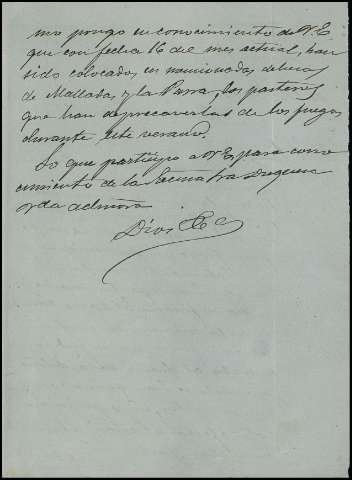 mo pongo en conocimiento de V.E.
que con fecha 16 del mes actual, han
sido colocados en mencionadas dehesas
de Mallada, y la Parra, los pastores
que han de precaverlas de los fuegos
durante este verano.
Lo que participo a V.E. para cono
cimiento de la Excma Sra Duquesa
Dios &a